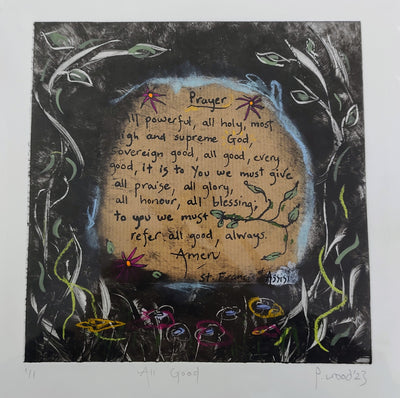 Prayer
All powerful, all holy, most
high and supreme God,
sovereign good, all good, every
good, it is to You we must give
all praise, all glory,
all honour, all blessing;
to you we must
refer all good, always.
Amen
St Francis of Assisi
1/1 All Good P. Wood '23